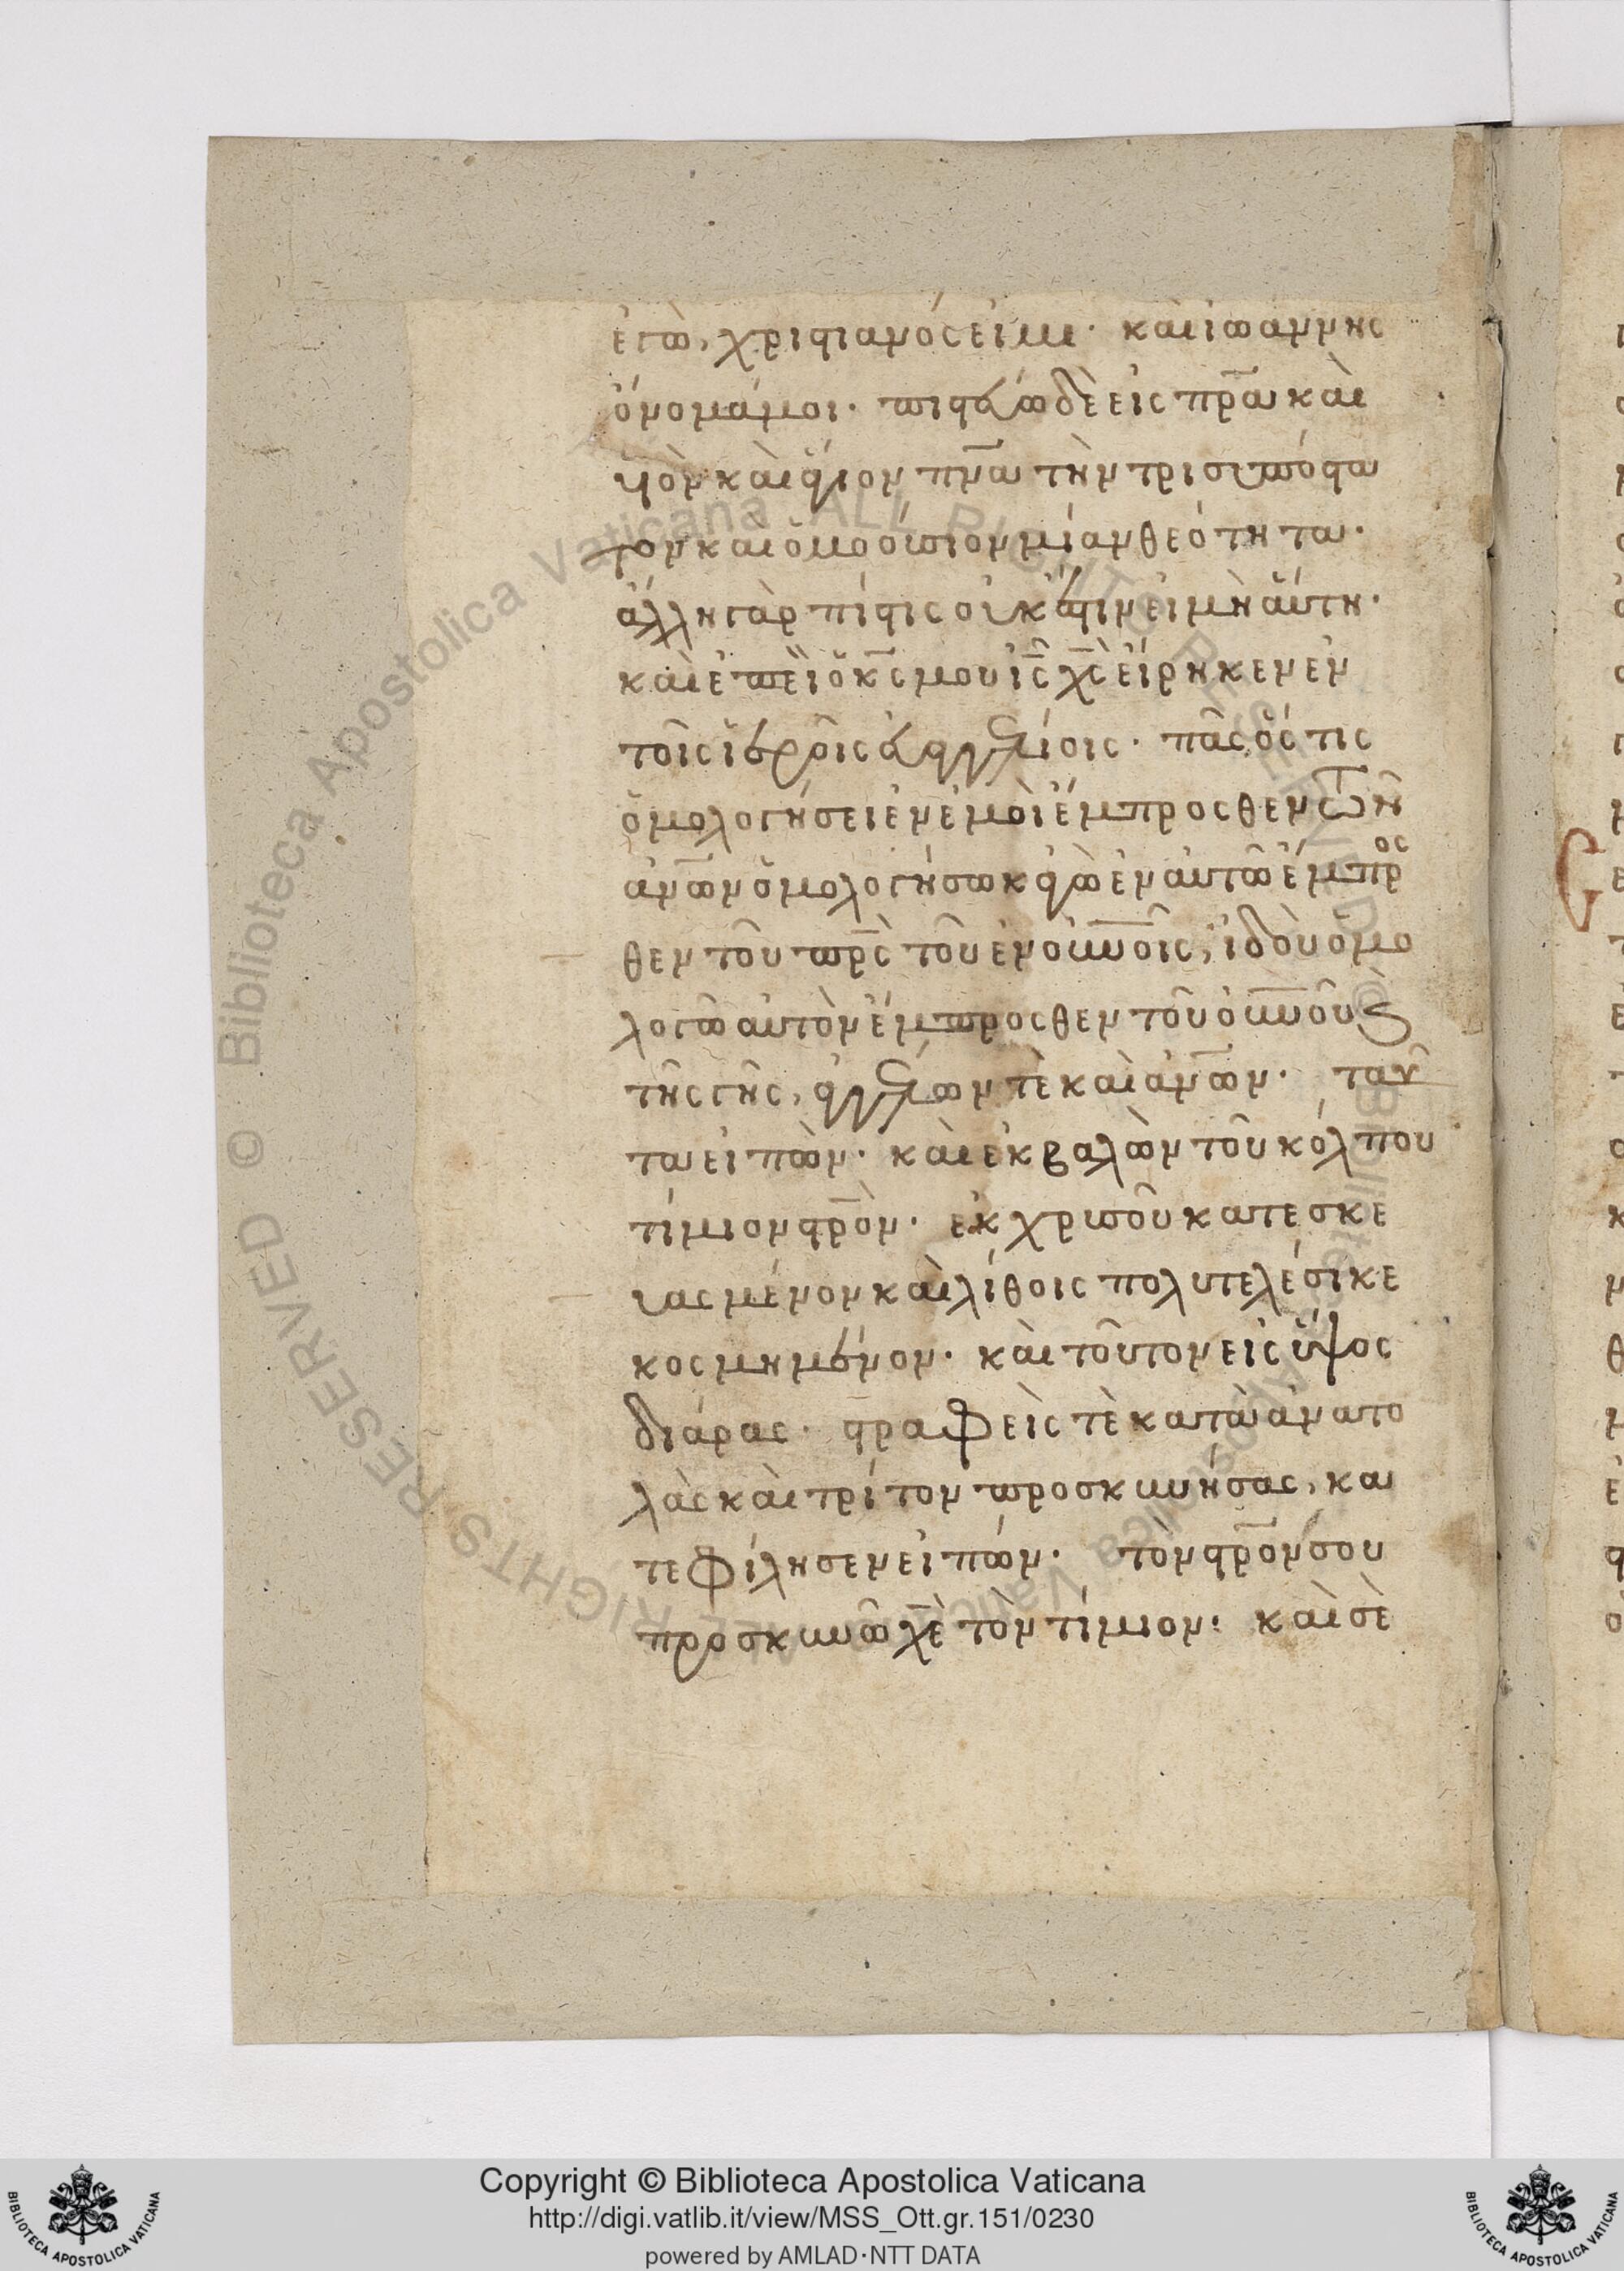 ἐγὼ, χριστιανός εἰμι· καὶ ἰωάννης
ὄνομά μοι· πιστεύω δὲ εἰς πρ̅α καὶ
υἱὸν καὶ ἅγιον πν̅α τὴν τρισυπόστα
τον καὶ ὁμοούσιον μίαν θεότητα·
ἄλλη γὰρ πίστις οὐκ ἔστιν εἰ μὴ αὕτη·
καὶ ἐπεὶ ὁ κ̅ς μου ι̅ς χ̅ς εἴρηκεν ἐν
τοῖς ἱεροῖς εὐαγγελίοις· πᾶς ὅστις
ὁμολογήσει ἐν ἐμοὶ ἔμπροσθεν τῶν
ἀν̅ων ὁμολογήσω κἀγὼ ἐν αὐτῶ ἔμπρος
θεν τοῦ πρ̅ς τοῦ ἐν οὐν̅οῖς, ἰδοὺ ὁμο
λογῶ αὐτὸν ἔμπροσθεν τοῦ οὐν̅οῦ ϗ
τῆς γῆς, ἀγγέλων τὲ καὶ ἀν̅ων· ταῦ
τα εἰπὼν· καὶ ἐκβαλὼν τοῦ κόλπου
τίμιον στρ̅ὸν· ἐκ χρυσοῦ κατεσκε
υασμένον καὶ λίθοις πολυτελέσι κε
κοσμημένον· καὶ τοῦτον εἰς ὕψος
διάρας· στραφεὶς τὲ κατὰ ἀνατο
λὰς καὶ τρίτον προσκυνήσας, κα
τεφίλησεν εἰπών· τὸν στρ̅όν σου
προσκυνῶ χ̅ὲ τὸν τίμιον: καὶ σὲ
Biblioteca Apostolica Vaticana ALL RIGHTS RESERVED ©
Copyright © Biblioteca Apostolica Vaticana
http://digi.vatlib.it/view/MSS_Ott.gr.151/0230
powered by AMLAD·NTT DATA
BIBLIOTECA APOSTOLICA VATICANA
BIBLIOTECA APOSTOLICA VATICANA